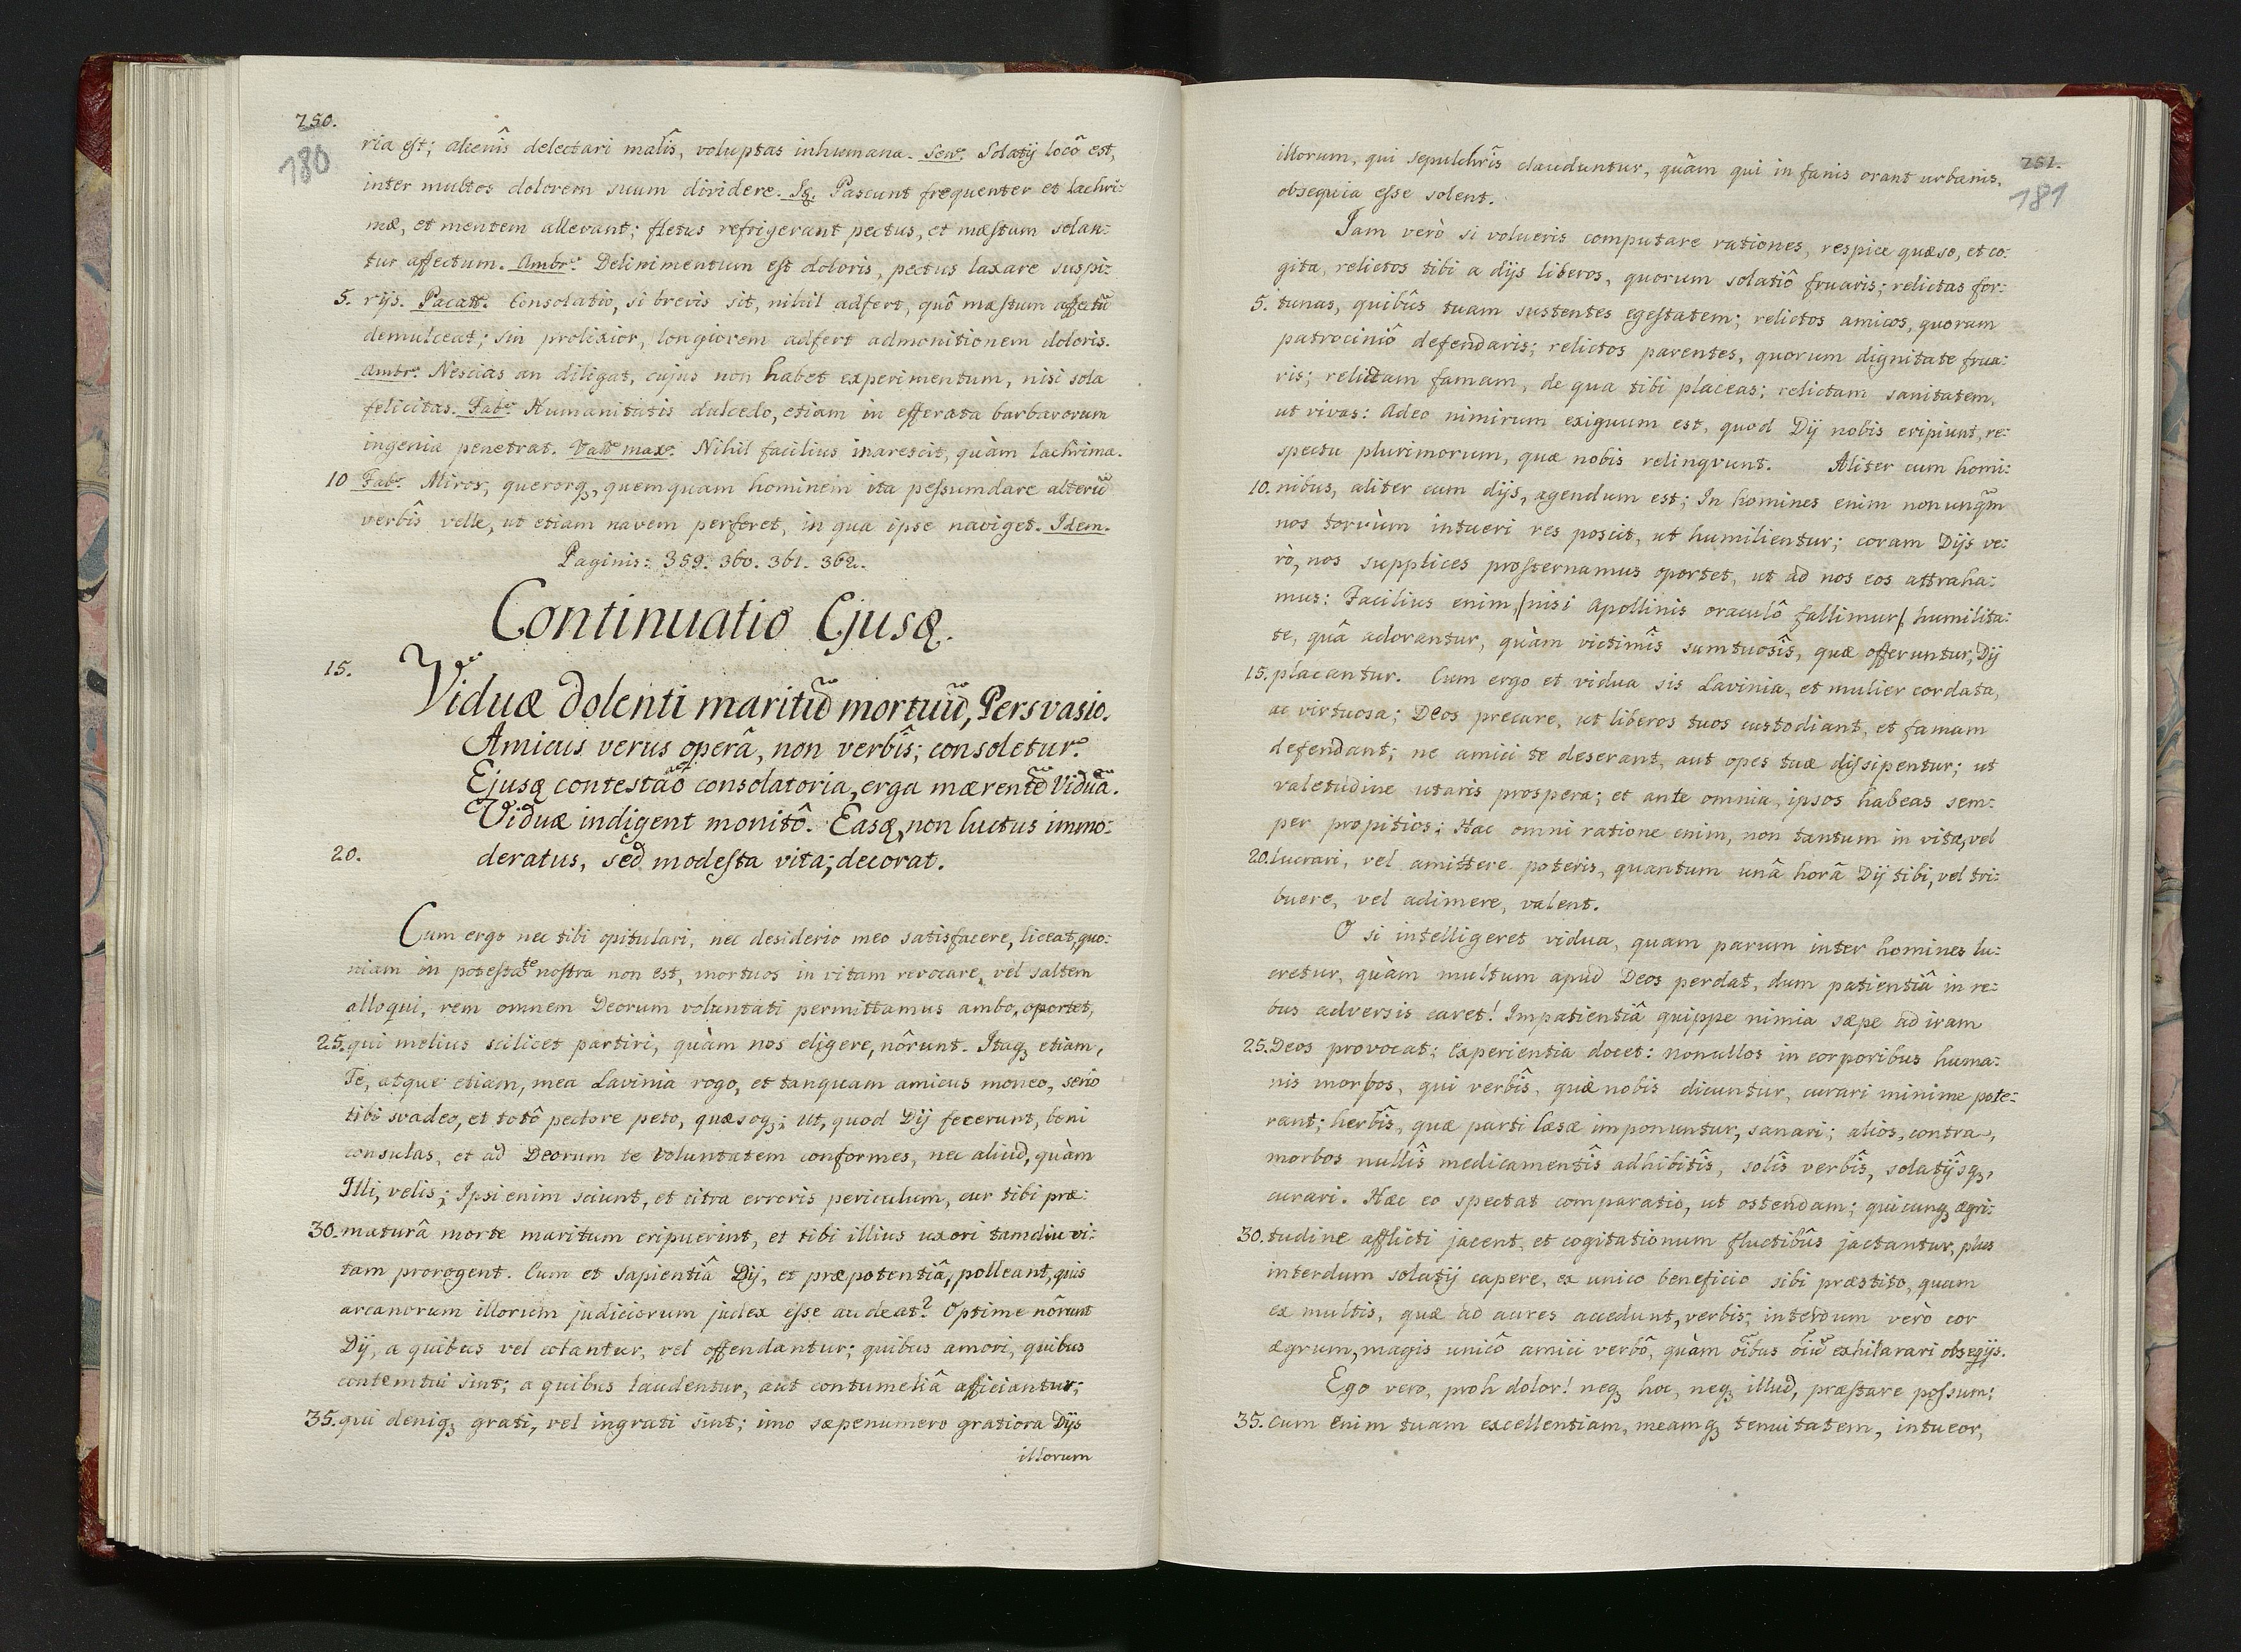 250.
180
ria est; alienîs delectari malîs, voluptas inhumana. Senc. Solatij locô est,
inter multos dolorem suum dividere. Sq. Pascunt frequenter et lachri:
mæ, et mentem allevant; fletus refrigerant pectus, et mæstum solan:
tur affectum. Ambr. Delinimentum est doloris, pectus laxare suspi:
5. rijs. Pacatt. Consolatio, si brevis sit, nihil adfert, quô mæstum affectũ
demulceat; sin prolixior, longiorem adfert admonitionem doloris.
Ambr. Nescias an diligat, cujus non habet experimentum, nisi sola
felicitas. Fab. Humanitatis dulcedo, etiam in efferata barbarorum
ingenia penetrat. Val. max. Nihil facilius inarescit, quàm lachrima.
10 Fab. Miror, querorq, quemquam hominem ita pessumdare alterũ
verbîs velle, ut etiam navem perforet, in qua ipse naviget. Idem.
Paginis: 359. 360. 361. 362.
Continuatio Ejusq.
15.
Viduæ dolenti maritũ mortuũ, Persvasio.
Amicus verus operâ, non verbîs; consoletur.
Ejusq contestaõ consolatoria, erga mærentẽ Viduã.
Viduæ indigent monitô. Easq, non luctus immo:
20. deratus, sed modesta vita; decorat.
Cum ergo nec tibi opitulari, nec desiderio meo satisfacere, liceat, quo:
niam in potestate nostra non est, mortuos in vitam revocare, vel saltem
alloqui, rem omnem Deorum voluntati permittamus ambo, oportet,
25. qui melius scilicet partiri, quàm nos eligere, nôrunt. Itaq etiam,
Te, atque etiam, mea Lavinia rogo, et tanquam amicus moneo, serio
tibi svadeo, et totô pectore peto, quæsoq; ut, quod Dij fecerunt, boni
consulas, et ad Deorum te voluntatem conformes, nec aliud, quàm
Illi, velis; Ipsi enim sciunt, et citra erroris periculum, cur tibi præ:
30. maturâ morte maritum eripuerint, et tibi illius uxori tamdiu vi:
tam prorogent. Cum et sapientiâ Dij, et præpotentiâ, polleant, quis
arcanorum illorum judiciorum judex esse audeat? Optime nôrunt
Dij, a quibus vel colantur, vel offendantur; quibus amori, quibus
contemtui sint; a quibus laudentur, aut contumeliâ afficiantur;
35. qui deniq grati, vel ingrati sint; imo sæpenumero gratiora Dijs
illorum
251.
181
illorum, qui sepulchrîs clauduntur, quâm qui in fanis orant urbanis,
obsequia esse solent.
Iam verò si volueris computare rationes, respice quæso, et co:
gita, relictos tibi a dijs liberos, quorum solatiô fruaris; relictas for:
5. tunas, quibûs tuam sustentes egestatem; relictos amicos, quorum
patrociniô defendaris; relictos parentes, quorum dignitate frua:
ris; relictam famam, de qua tibi placeas; relictam sanitatem,
ut vivas: Adeo nimirum exiguum est, quod Dij nobis eripiunt, re:
spectu plurimorum, quæ nobis relinqvunt. Aliter cum homi:
10. nibus, aliter cum dijs, agendum est; In homines enim nonunqm̃
nos torvùm intueri res poscit, ut humilientur; coram Dijs ve:
rò, nos supplices prosternamus oportet, ut ad nos eos attraha:
mus: Facilius enim, /nisi Apollinis oraculô fallimur/, humilita:
te, quâ adorantur, quàm victimîs sumtuosîs, quæ offeruntur, Dij
15. placantur. Cum ergo et vidua sis Lavinia, et mulier cordata,
ac virtuosa; Deos precare, ut liberos tuos custodiant, et famam
defendant; ne amici te deserant, aut opes tuæ dissipentur; ut
valetudine utaris prospera; et ante omnia, ipsos habeas sem:
per propitios; Hac omni ratione enim, non tantum in vita, vel
20. lucrari, vel amittere poteris, quantum unâ horâ Dij tibi, vel tri:
buere, vel adimere, valent.
O si intelligeret vidua, quam parum inter homines lu:
cretur, quàm multum apud Deos perdat, dum patientiâ in re:
bus adversis caret! Impatientiâ quippe nimia sæpe ad iram
25. Deos provocat; Experientia docet: nonullos in corporibus huma:
nis morbos, qui verbîs, quæ nobis dicuntur, curari minime pote:
rant; herbîs, quæ parti læsæ imponuntur, sanari; alios, contra,
morbos nullîs medicamentîs adhibitîs, solîs verbîs, solatijsq,
curari. Hæc eo spectat comparatio, ut ostendam; quicunq ægri:
30. tudine afflicti jacent, et cogitationum fluctibûs jactantur, plus
interdum solatij capere, ex unico beneficio sibi præstito, quam
ex multis, quæ ad aures accedunt, verbis; interdum verò cor
ægrum, magis unicô amici verbô, quàm oĩbus oĩũ exhilarari obseqijs.
Ego vero, proh dolor! neq hoc, neq illud, præstare possum;
35. Cum enim tuam excellentiam, meamq tenuitatem, intueor,